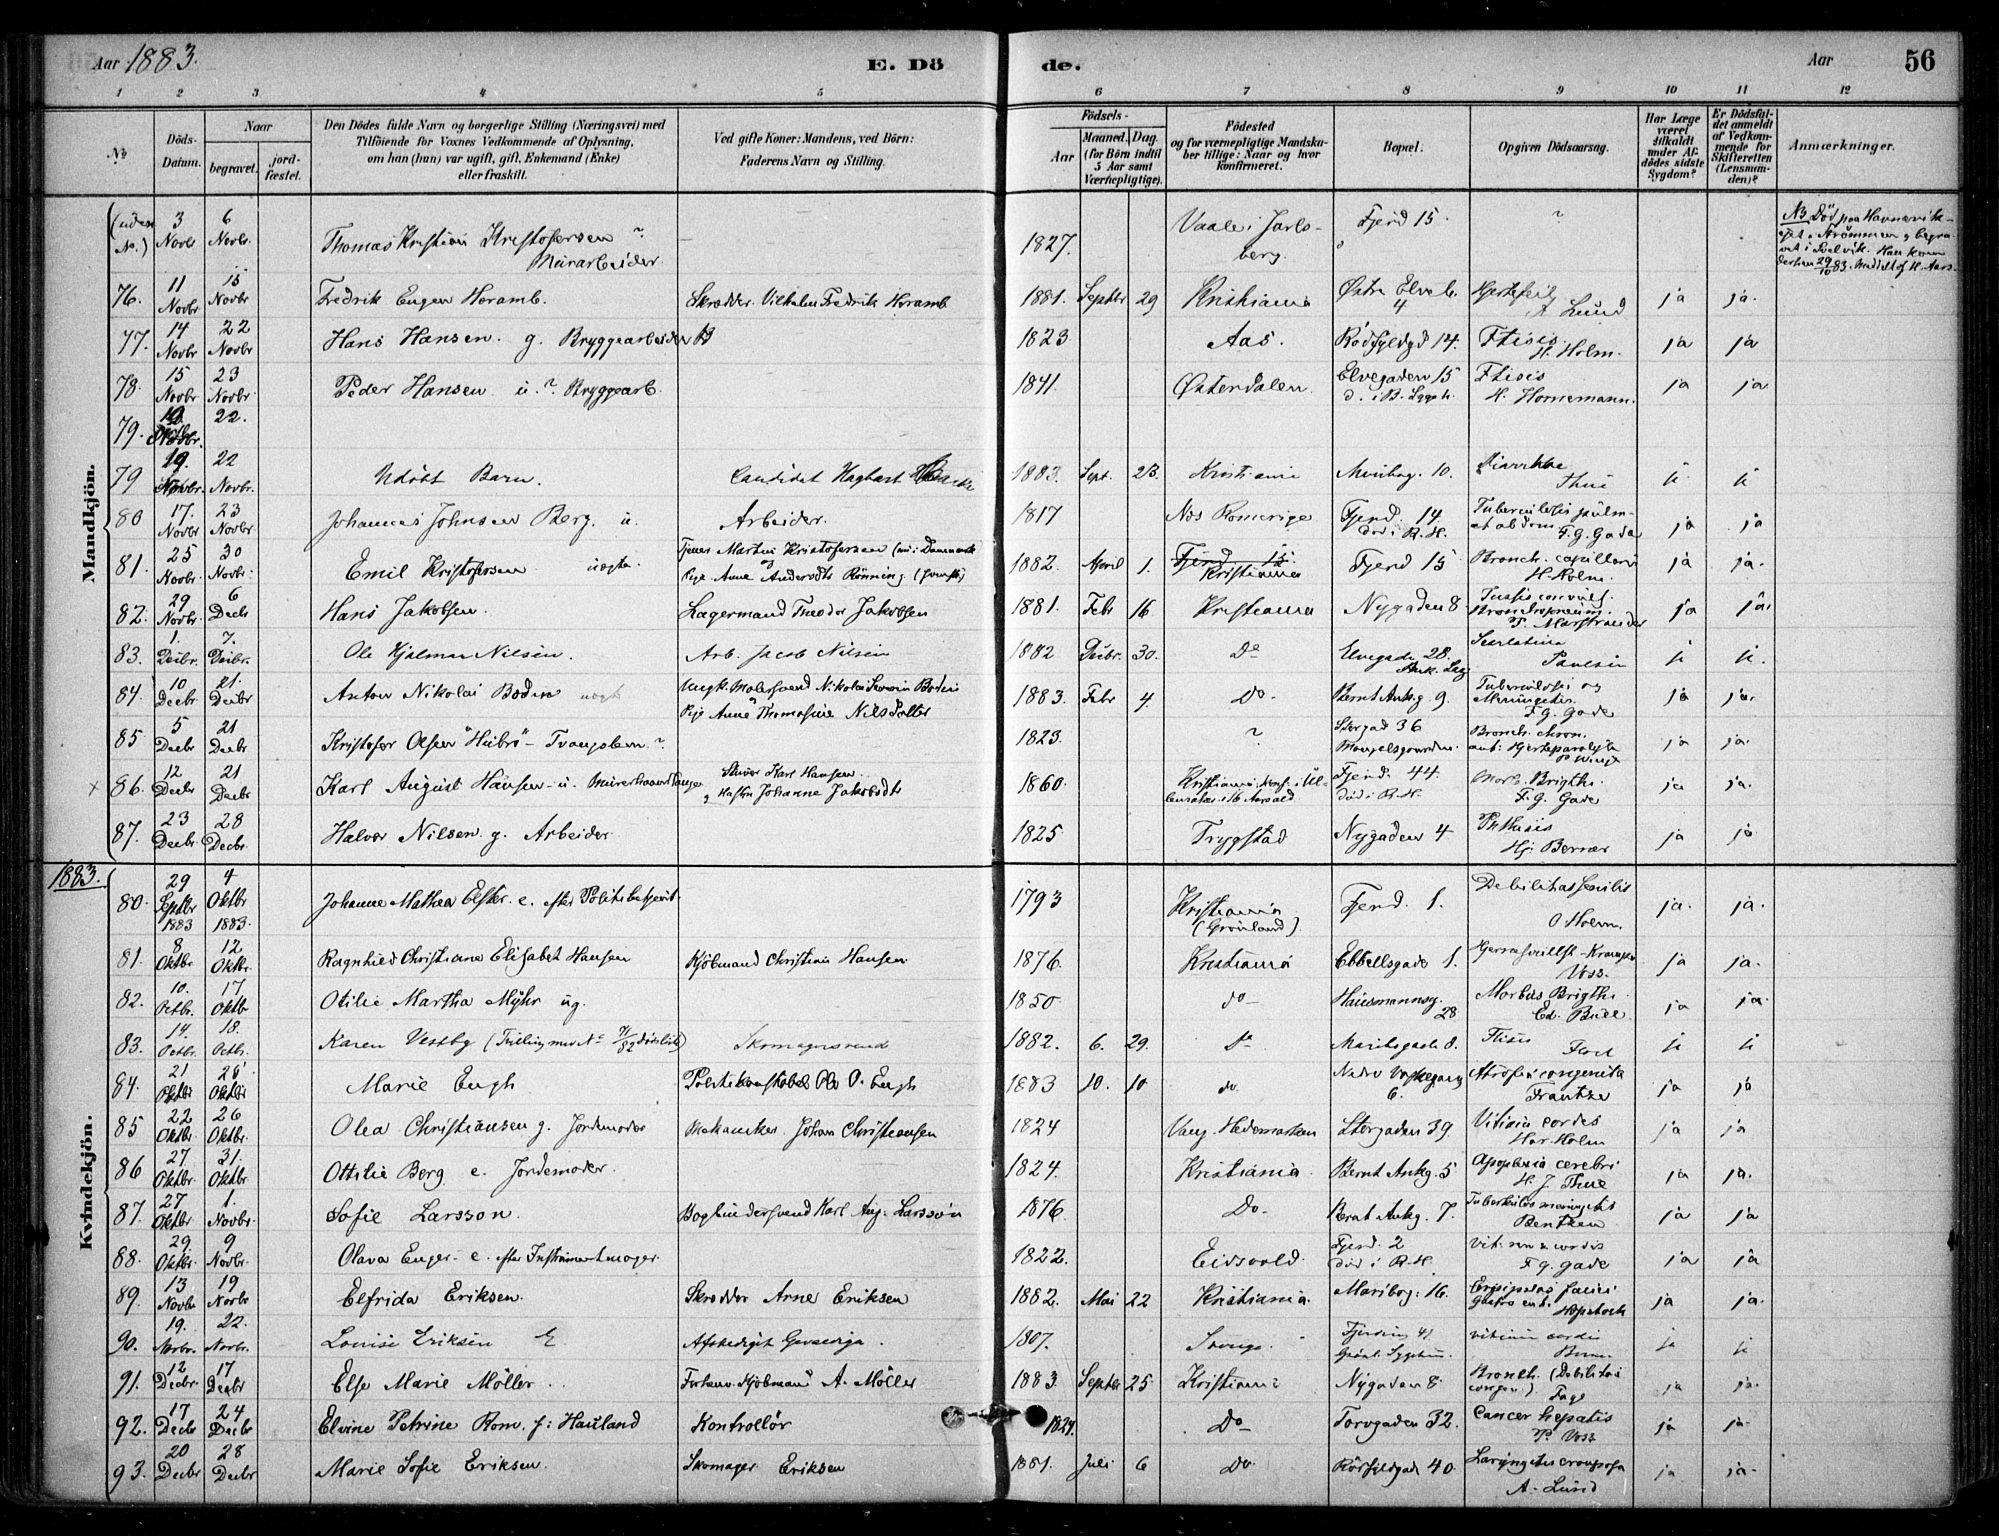 Aar 1883. E. Döde. Aar 56
1 2 3 4 5 6 7 8 9 10 11 12
No
Döds-Datum.
Naar begravet. jordfæstet.
Den Dödes fulde Navn og borgerlige Stilling (Næringsvei) med Tilföiende for Voxnes Vedkommende af Oplysning, om han (hun) var ugift, gift, Enkemand (Enke) eller fraskilt.
Ved gifte Koner: Mandens, ved Börn: Faderens Navn og Stilling.
Födsels- Aar Maaned. Dag. (for Börn indtil 5 Aar samt Værnepligtige).
Födested og for værnepligtige Mandskaber tillige: Naar og hvor konfirmeret.
Bopæl.
Opgiven Dödsaarsag.
Har Læge været tilkaldt under Afdödes sidste Sygdom?
Er Dödsfaldet anmeldt af Vedkommende for Skifteretten (Lensmanden)?
Anmærkninger.
Mandkjön.
(uden No.) 3 Novbr. 6 Novbr. Thomas Kristian Kristofersen ? Murarbeider 1827. Vaale i Jarlsberg. Fjerd 15 ? NB Död paa
76. 11 Novbr 15 Novbr Fredrik Eugen Heramb. Skrædder Vilhelm Fredrik Heramb 1881. Septbr 29 Kristiania Østre Elveb. 4 Hjertefeil A Lund ja ja.
77. 14 Novbr 22 Novbr. Hans Hansen g. Bryggearbeider 1823 Aas. Rødfyldgd 14. Ftisis. H. Holm. ja ja
78. 15 Novbr. 23 Novbr. Peder Hansen u.? Bryggearb. 1841. Østerdalen Elvegaden 15 Ftisis H. Hornemann. ja ja
79. Novbr. 22.
79 19. Novbr. 22 Novbr. Udöbt Barn. Candidat 1883. Sept. 23. Kristiania 10. Diarrhoe Thue ja ja
80 17. Novbr 23 Novbr Johannes Johnsen Berg. u. Arbeider. 1817 Nes Romerige Fjerd. 14. död i R.H. Tuberculosis pulm. et abdom F. G. Gade ja ja
81. 25 Novbr. 30 Novbr. Emil Kristofersen uægte Tjener Martin Kristofersen (nu i Danmark) Pige Anne Andersdtr Rønning 1882. April 1. Fjerd 15 Kristiania Fjerd 15 Bronch. capillaris H. Holm. ja ja.
82. 29 Novbr. 6 Decbr Hans Jakobsen. Lagermand Theodor Jakobsen 1881. Febr 16 Kristiania Nygaden 8. Tussis convuls. Bronchopneum. Marstrander ja ja.
83. 1. Decbr. 7. Decbr. Ole Hjalmar Nilsen. Arb. Jacob Nilsen 1882 Decbr. 30. Do Elvegade 28. Scarlatina Paulsen ja ja.
84. 10 Decbr. 21. Decbr. Anton Nikolai Boden uægt Ungk. Malersvend Nikolai Severin Boden Pige Anne Thomasine Nilsdatter 1883. Febr 4. Do- Bernt Ankg. 9. Tuberculose og Meningitis. F. G. Gade ja ja.
85 5 Decbr 21 Decbr. Kristofer Olsen "Hubro" - Tvangslem ? 1823. ? Storgad 36 Mangelsgaarden. Bronch. chron. Hjerteparalyse ja ja.
x 86. 12 Decbr 21 Decbr Karl August Hansen - u. Murerhaandlanger Karl Hansen. Johanne Jakobsdtr 1860. Kristiania Fjerd. 44. död i R.H. Morb. Brigthi. F. G. Gade ja ja.
87. 23 Decbr. 28 Decbr. Halvor Nilsen g. Arbeider 1825 Trygstad Nygaden 4 Phthisis Hj. Berner ja ja
1883.
Kvindekjön.
80. 29 Septbr 1883 4 Oktbr 1883. Johanne Mathea Elster. e. efter Politibetjent. 1793 Kristiania (Grønland). Fjerd. 1. Debilitas senilis O Holm. ja. ja.
81. 8 Oktbr. 12 Oktbr. Ragnhild Christiane Elisabet Hansen Kjöbmand Christian Hansen. 1876. Kristiania Ebbellsgade 1. Voss. ja ja.
82. 10. Octbr. 17 Oktbr Otilie Martha Myhr ug. 1850 do- Hausmannsg. 28 Morbus Brigthi. Ed. Bull. ja ja.
83. 14. Octbr. 18. Octbr. Karen Vestby (Tvilling med No Skomagersvend 1882. 6. 29. Do Maribogade 8. Ftisis ja ja
84. 21 Oktbr 25 Oktbr Marie Engh Politikonstabel Ole O. Engh 1883 10. 10 do. Nedre 6. Atrofia congenita Frantze ja ja
85 22 Oktbr. 26 Oktbr. Olea Christiansen g. Jordemoder Mekaniker Johan Christiansen 1824 Vang Hedemarken Storgaden 39. Vitium cordis Holm ja ja
86 27 Oktbr. 31. Oktbr Ottilie Berg e. Jordemoder. 1824. Kristiania. Bernt Ankg. 5 Apoplexia cerebri H. J. Thue ja ja.
87. 27 Oktbr 1. Novbr. Sofie Larsson. Bogbindersvend Karl Aug. Larsson 1876. Do- Bernt Ankg. 7. Tuberkuløs meningit Bentzen ja ja
88. 29 Oktbr. 9 Novbr. Olava Enger- e. efter Instrumentmager. 1822. Eidsvold Fjerd. 2 död i R.H. F. G. Gade ja ja
89. 13 Novbr 19 Novbr. Elfrida Eriksen. Skrædder Arne Eriksen 1882. Mai 22 Kristiania. Maribog. 16. Erysipelas faciei ja ja.
90. 19. Novbr. 22. Novbr. Louise Eriksen E Afskediget 1807. Fjerding 41 vitium cordis ja ja
91. 12 Decbr. 17 Decbr Else Marie Möller.. Forhenv. Kjöbmand A. Möller 1883. Septbr 25 Kristiania Nygaden 8. Bronch. (Debilitas congen.) ja ja.
92. 17 Decbr 24 Decbr Elvine Petrine Rom. f: Hauland Kontrollör 1824. Do Torvgaden 32. Cancer hepatis P. Voss ja ja
93. 20 Decbr 28 Decbr Marie Sofie Eriksen. Skomager Eriksen 1881. Juli 6 Do. 40 Laryngitis crouposa A. Lund ja ja.